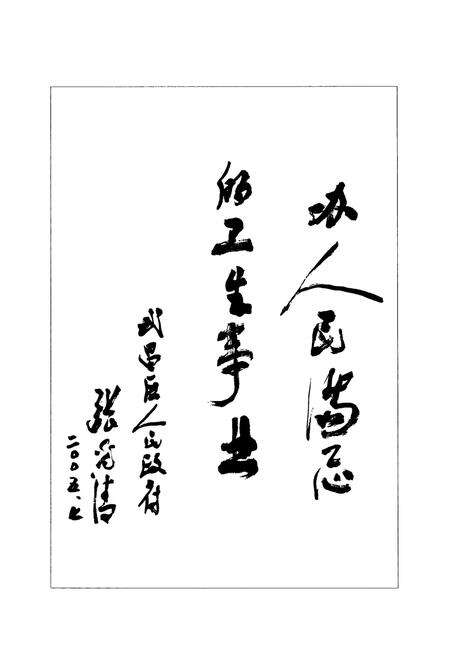 办人民满意
的卫生事业
武昌区人民政府
张
二〇〇五、七